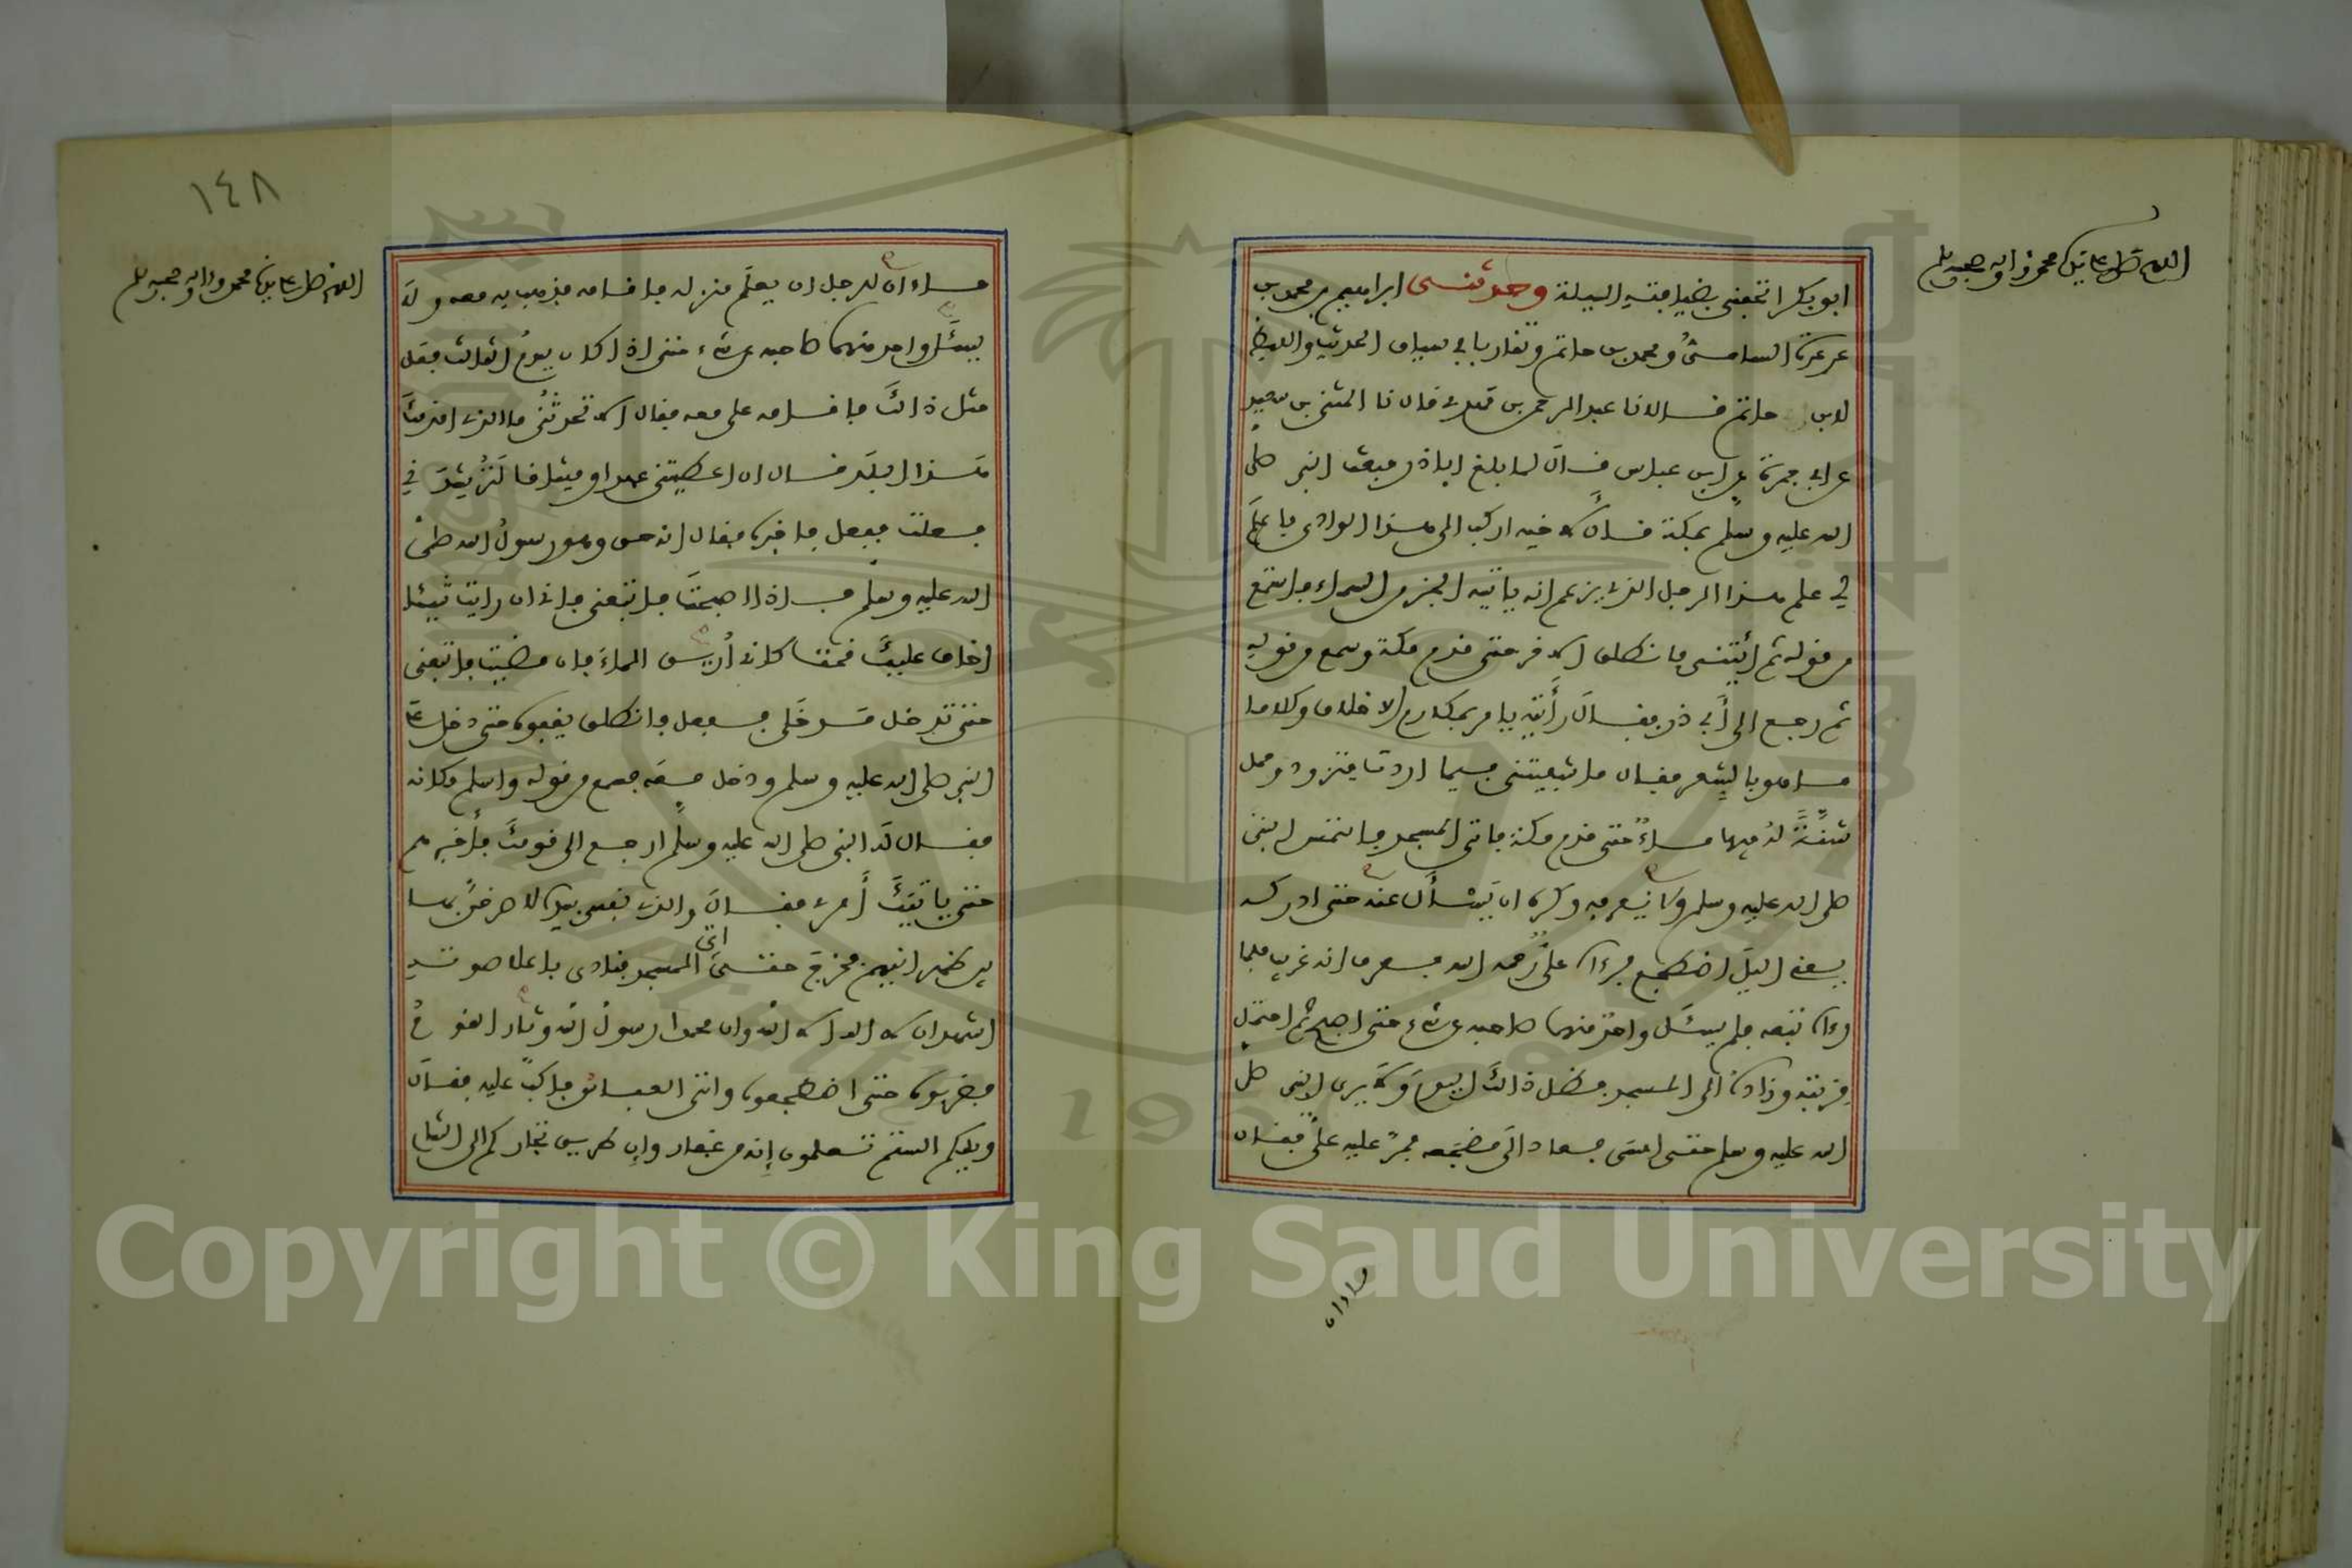 ابو بكر اتحفنى بضيافته الليلة وحدثنى ابراهيم بن محمد بن
عرعرة السامى ومحمد بن حاتم وتقاربا فى سياق الحديث واللفظ
لابن حاتم قالا نا عبد الرحمن بن مهدى قال نا المثنى بن سعيد
عن ابى جمرة عن ابن عباس قال لما بلغ اباذر مبعث النبى صلى
الله عليه وسلم بمكة قال لاخيه اركب الى هذا الوادى فاعلم
لى علم هذا الرجل الذى يزعم انه ياتيه الخبر من السماء فاستمع
من قوله ثم ائتنى فانطلق الاخر حتى قدم مكة وسمع من قوله
ثم رجع الى أبى ذر فقال رأيته يامر بمكارم الاخلاق وكلاما
ما هو بالشعر فقال ما شفيتنى فيما اردت فتزود وحمل
شنَّةً له فيها ماءٌ حتى قدم مكة فاتى المسجد فالتمس النبى
صلى الله عليه وسلم ولا يعرفه وكره ان يسْأل عنه حتى ادركه
يعنى اليل اضطجع فرءاه على رحمه الله فعرف انه غريب فلما
رءاه تبعه فلم يسئل واحد منهما صاحبه عن شىء حتى اصبح ثم احتمل
قربته وزاده الى المسجد فظل ذالك اليوم ولا يرى النبى صلى
الله عليه وسلم حتى امسى فعاد الى مضجعه فمرّ عليه علىٌّ فقال
ما ءان
ما ءان للرجل ان يعلم منزله فاقامه فذهب به معه ولا
يسئل واحد منهما صاحبه عن شىء حتى اذا كان يوم الثالث فعل
مثل ذالك فاقامه على معه فقال الا تحدثنى ما الذى اقدمك
هذا البلد قال ان اعطيتنى عهدا وميثاقا لترشدنى
فعلت ففعل فاخبره فقال انه حق وهو رسول الله صلى
الله عليه وسلم فاذا اصبحت فاتبعنى فانى ان رايت شيئا
اخاف عليك قمت كانى أريق الماء فان مضيت فاتبعنى
حتى تدخل مدخلى ففعل فانطلق يقفوه حتى دخل على
النبى صلى الله عليه وسلم ودخل معه فسمع من قوله واسلم مكانه
فقال له النبى صلى الله عليه وسلم ارجع الى قومك فأخبرهم
حتى ياتيك أمرى فقال والذى نفسى بيده لاصرخنّ بها
بين ظهرانيهم فخرج حتى اتى المسجد فنادى باعلا صوته
اشهد ان لا اله الا الله وان محمدا رسول الله وثار القوم
فضربوه حتى اضطجعوه واتى العباس فاكبّ عليه فقال
ويلكم الستم تعلمون إنه من غفار وان طريق تجاركم الى الشام
اللهم صل على سيدنا محمد واله وصحبه وسلم
اللهم صل على سيدنا محمد واله وصحبه وسلم
١٤٨
Copyright © King Saud University